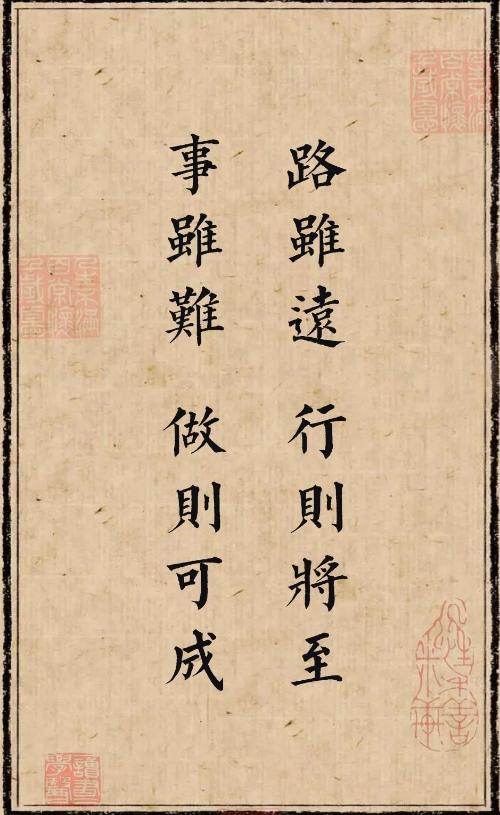 路雖遠 行則將至
事雖難 做則可成